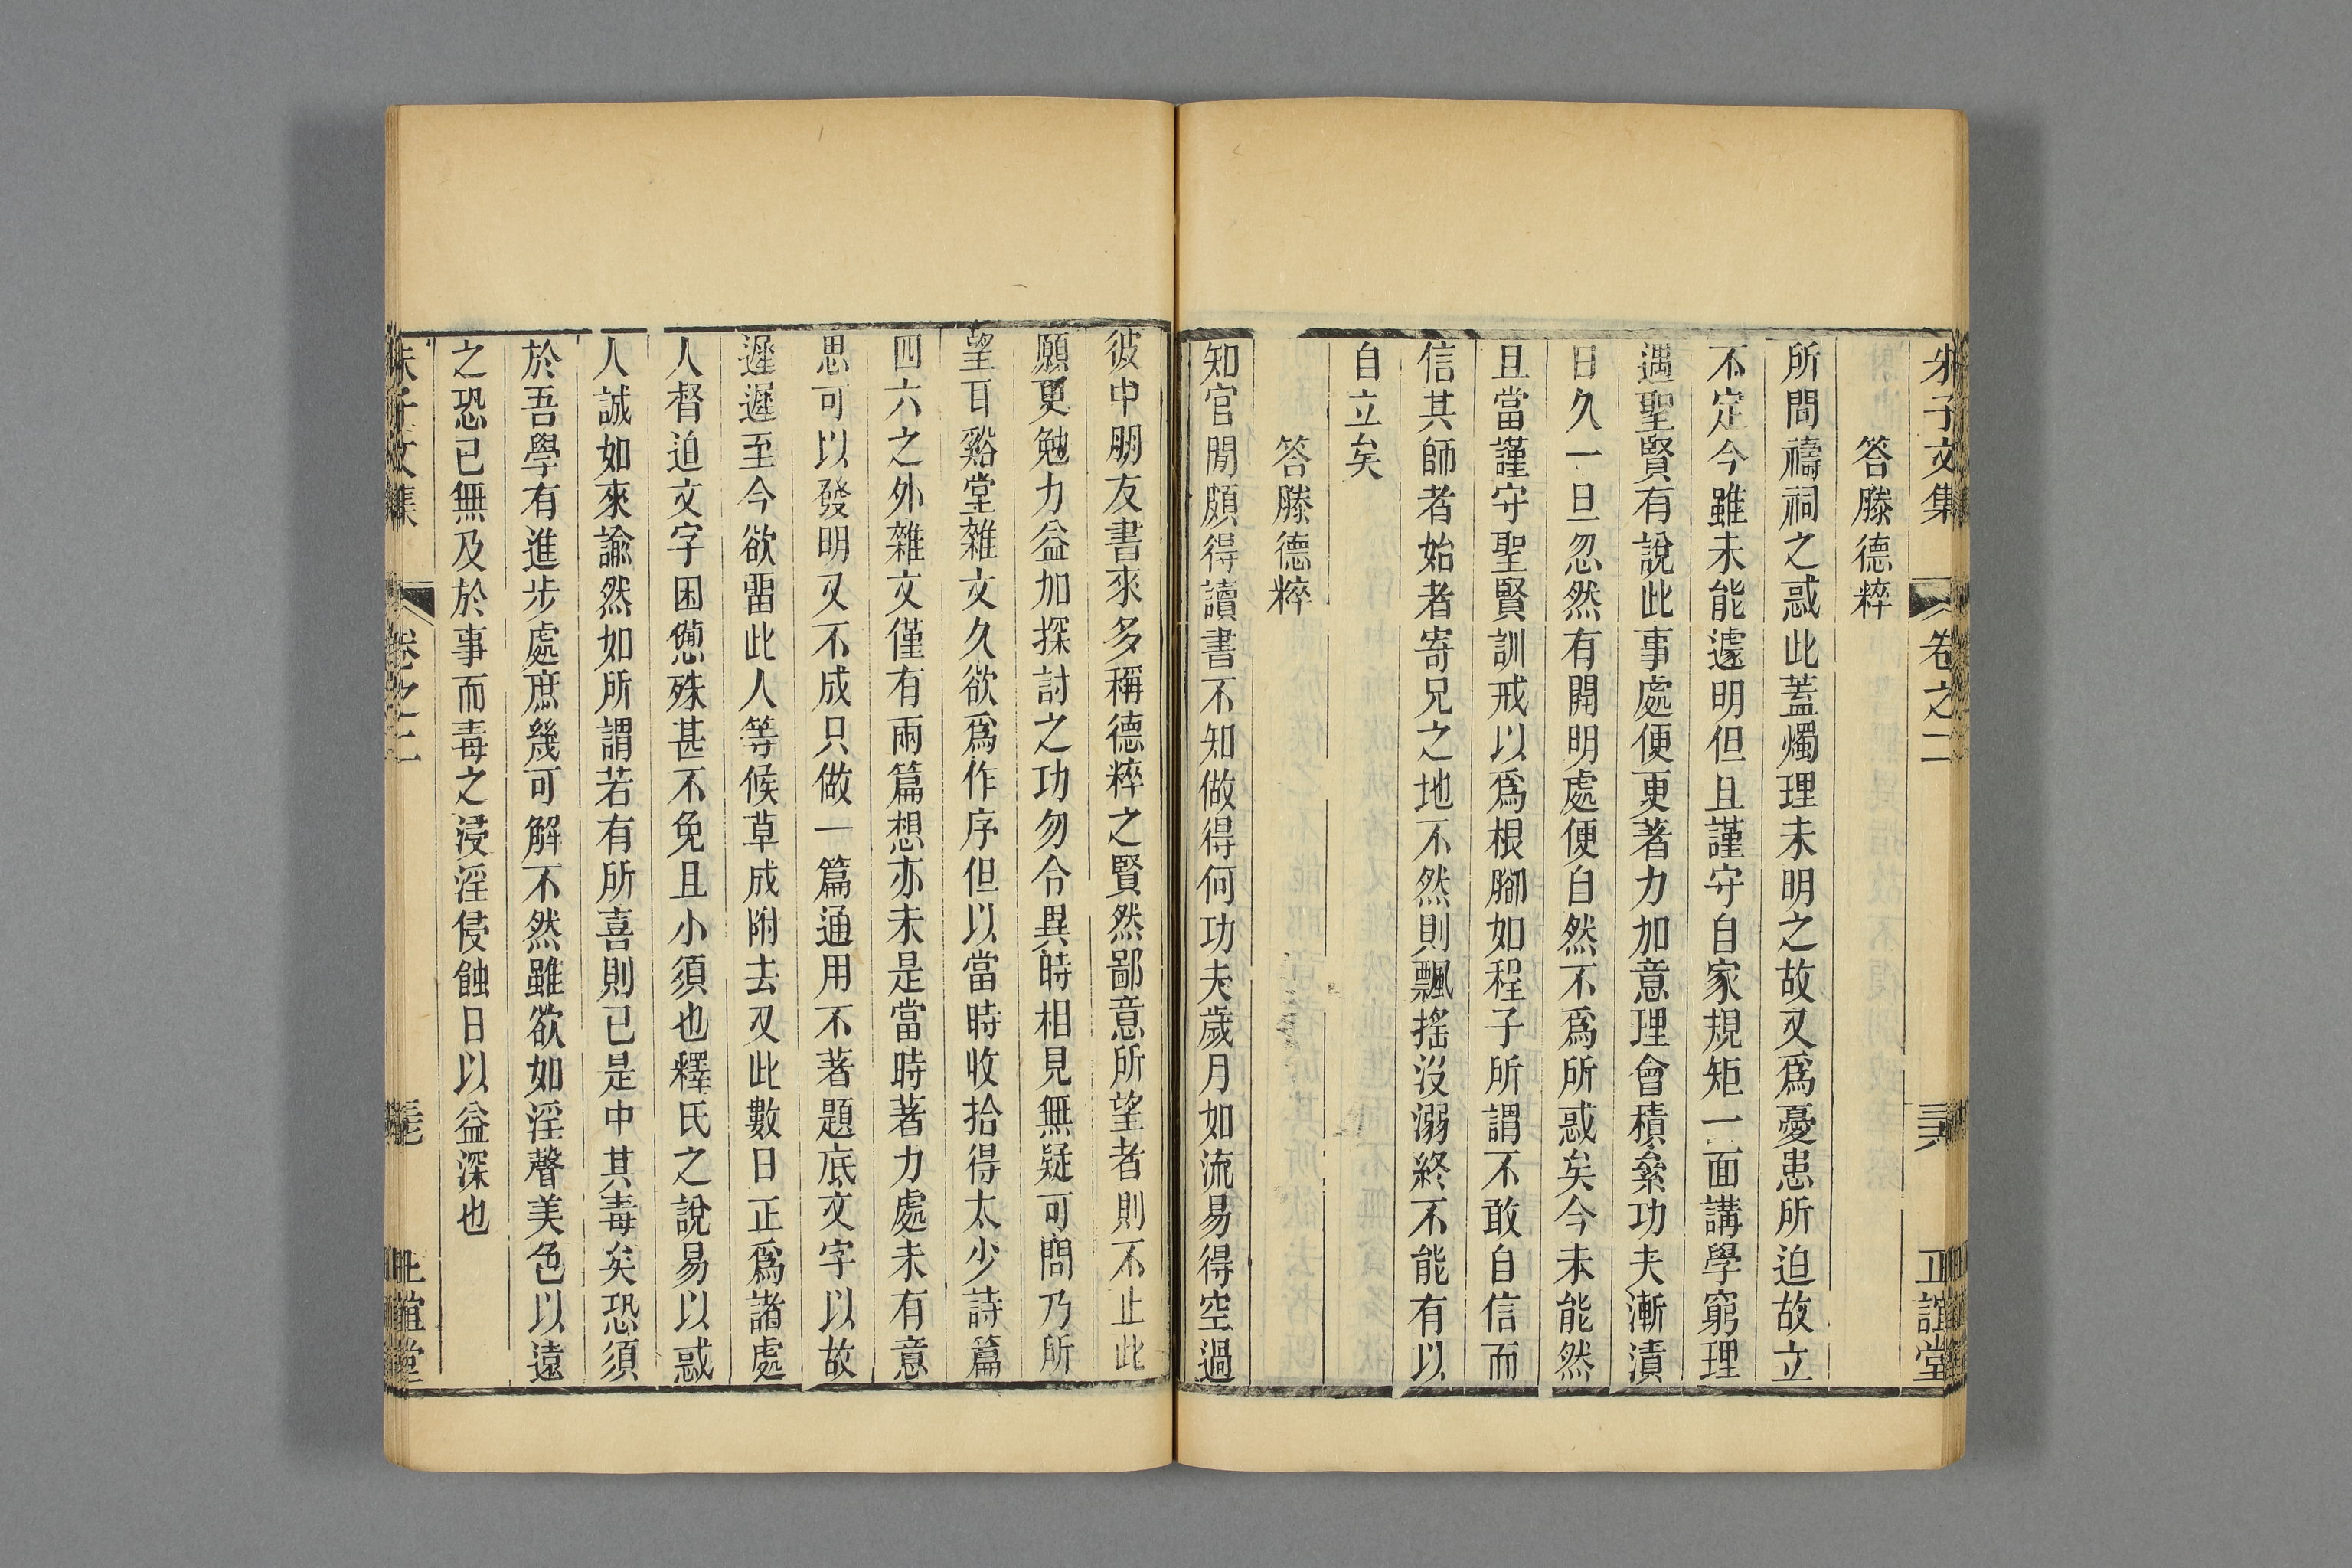 朱子文集 卷之二 三六 正誼堂
答滕德粹
所問禱祠之惑此蓋燭理未明之故又爲憂患所迫故立
不定今雖未能遽明但且謹守自家規矩一面講學窮理
遇聖賢有說此事處便更著力加意理會積絫功夫漸漬
日久一旦忽然有開明處便自然不爲所惑矣今未能然
且當謹守聖賢訓戒以爲根腳如程子所謂不敢自信而
信其師者始者寄兄之地不然則飄搖沒溺終不能有以
自立矣
答滕德粹
知官閒頗得讀書不知做得何功夫歲月如流易得空過
彼中朋友書來多稱德粹之賢然鄙意所望者則不止此
願更勉力益加探討之功勿令異時相見無疑可問乃所
望耳谿堂雜文久欲爲作序但以當時收拾得太少詩篇
四六之外雜文僅有兩篇想亦未是當時著力處未有意
思可以發明又不成只做一篇通用不著題底文字以故
遲遲至今欲畱此人等候草成附去又此數日正爲諸處
人督迫文字困憊殊甚不免且小須也釋氏之說易以惑
人誠如來諭然如所謂若有所喜則已是中其毒矣恐須
於吾學有進步處庶幾可解不然雖欲如淫聲美色以遠
之恐已無及於事而毒之浸淫侵蝕日以益深也
朱子文集 卷之二 正誼堂